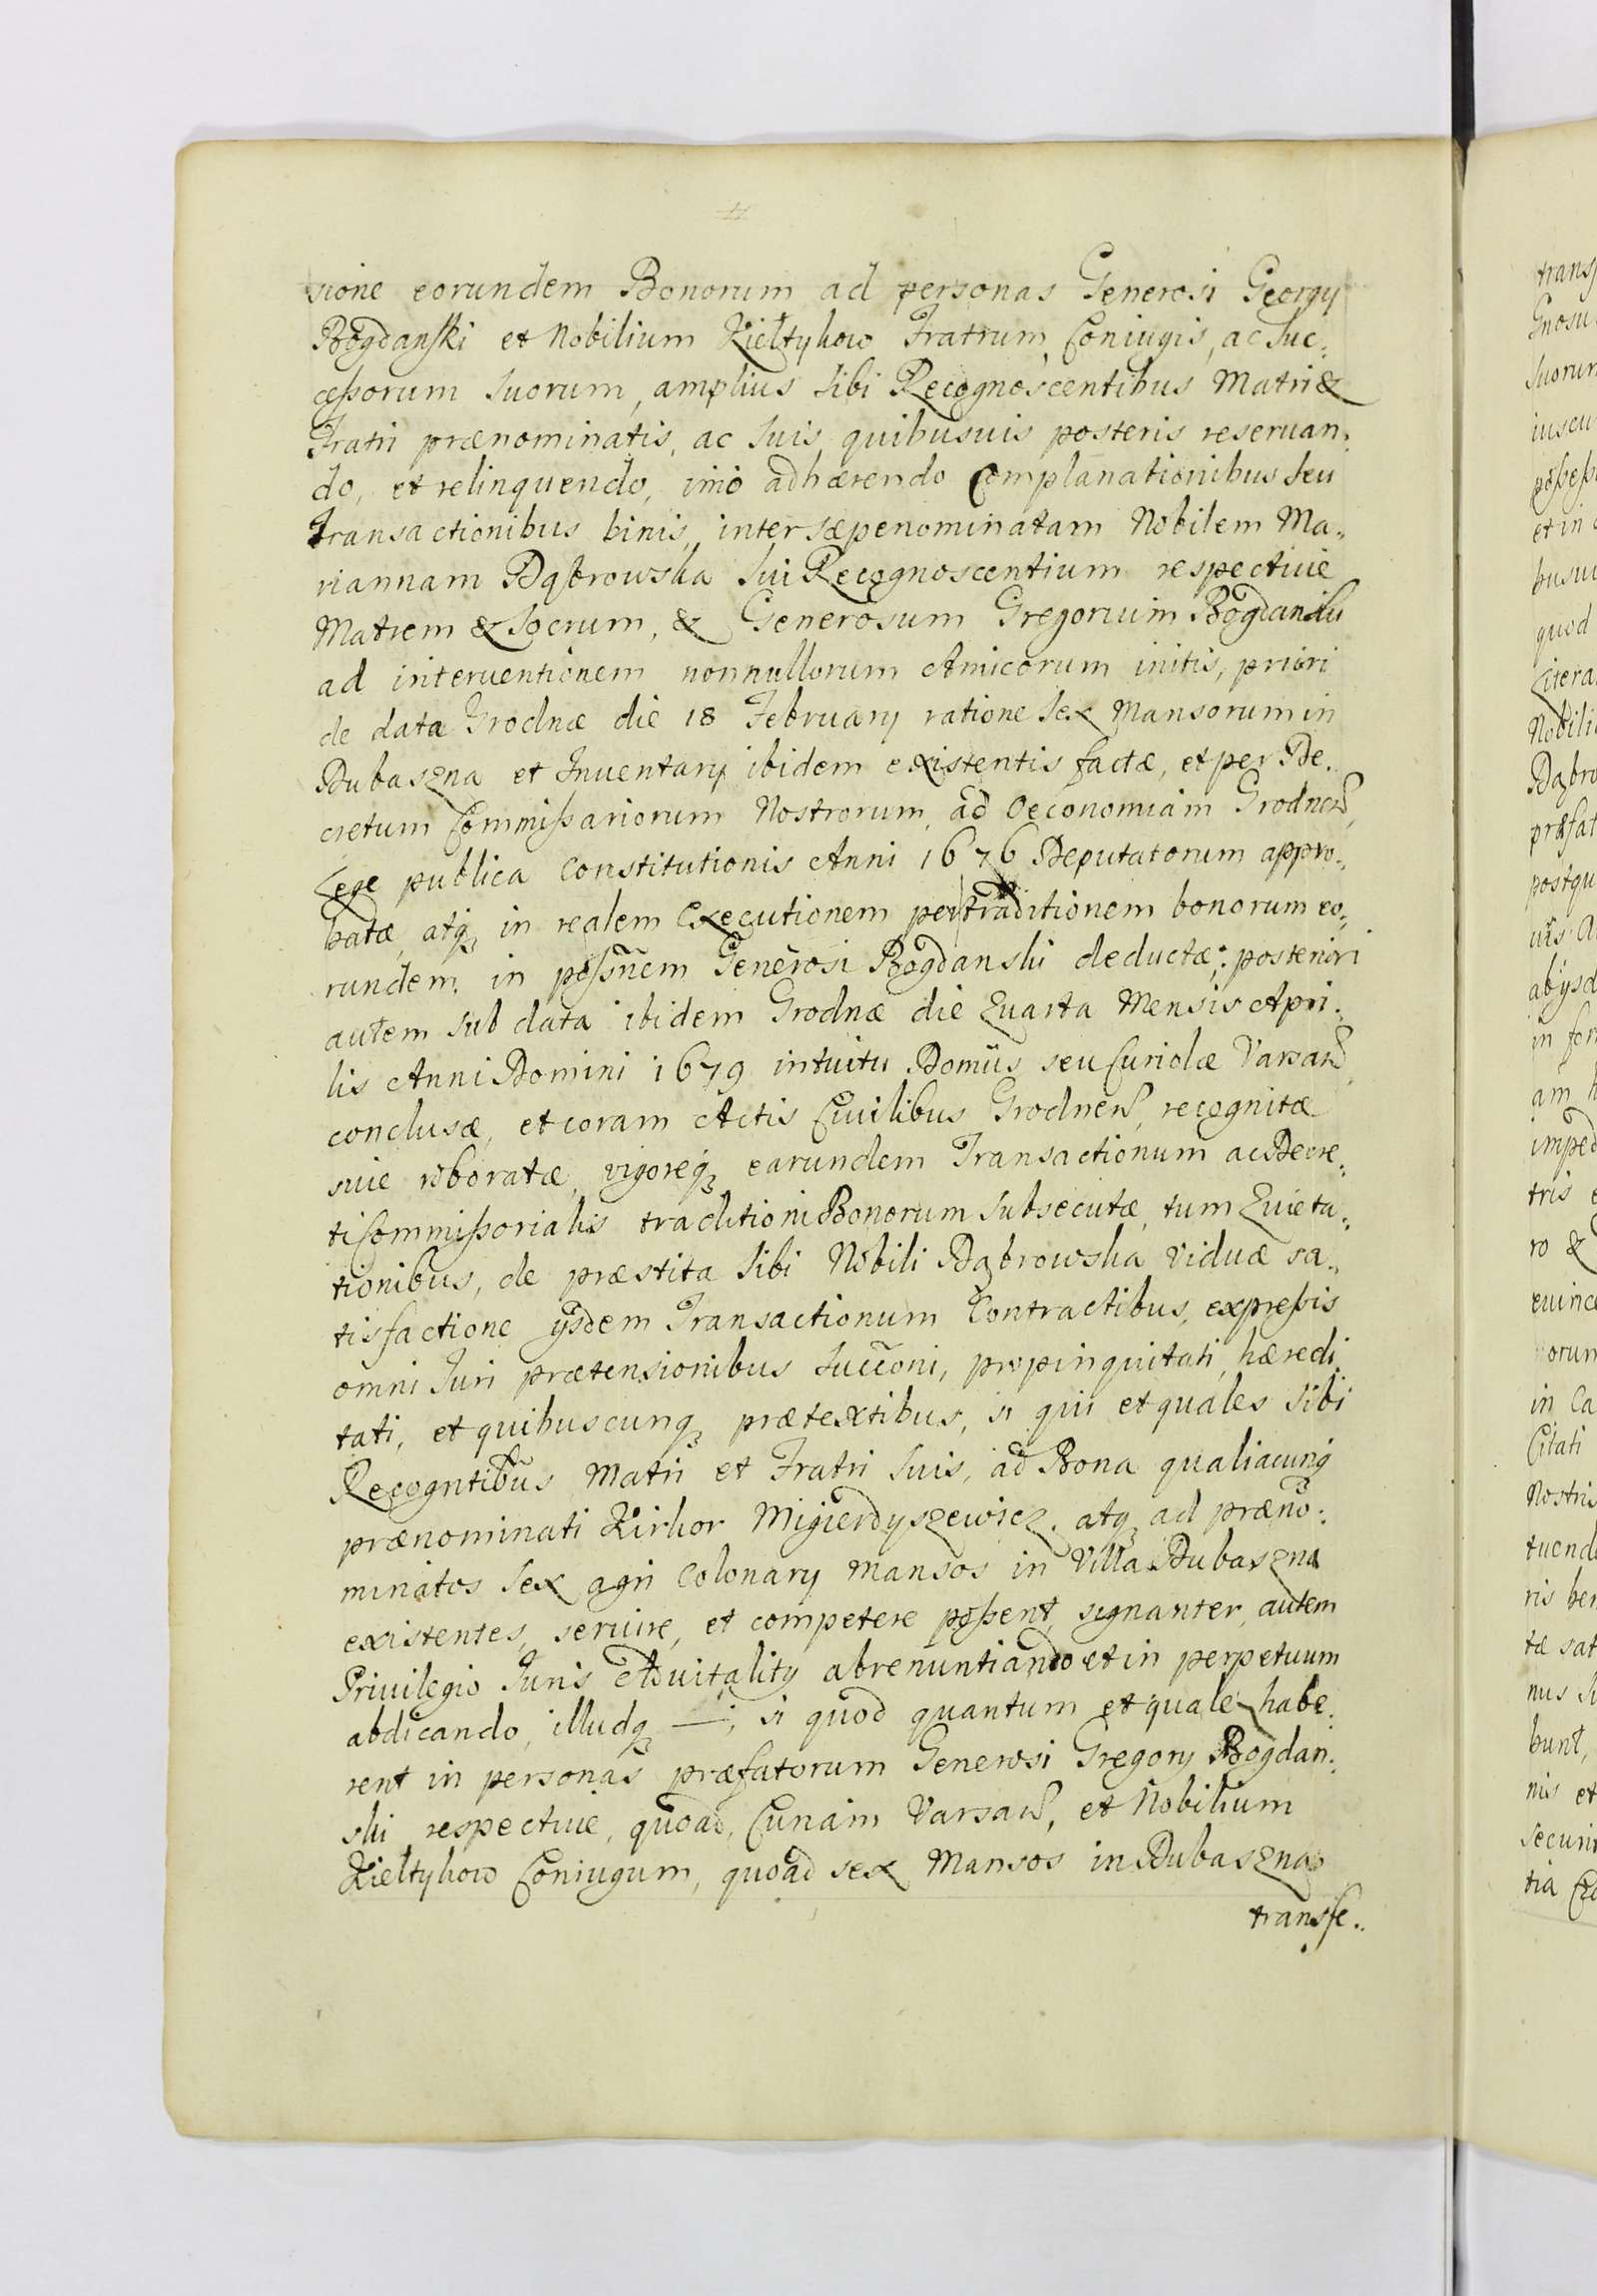 sione eorundem Bonorum ad personas Generosi Georgy
Bogdanski et Nobilium Kieltykow Fratrum, Coniugis, ac Suc:
ceßorum Suorum, amplius Sibi Recognoscentibus Matri &
Fratri prænominatis, ac Suis quibusuis posteris reseruan:
do, et relinquendo, imò adhærendo Complanationibus seu
Transactionibus binis, inter sæpenominatam Nobilem Ma:
riannam Dąbrowska Sui Recognoscentium respectiuè
Matrem & Socrum, & Generosum Gregorium Bogdanski
ad interuentionem nonnullorum Amicorum initis, priori
de data Grodnæ die 18 February ratione Sex Mansorum in
Dubaszna et Inuentary ibidem existentis factæ, et per De:
cretum Commißariorum Nostrorum, ad Oeconomiam Grodnen̄,
Lege publica Constitutionis Anni 1676 Deputatorum appro:
batæ, atq̨ in realem Executionem per traditionem bonorum eo:
rundem, in poßnem Generosi Bogdanski deductæ; posteriori
autem sub data ibidem Grodnæ die Quarta Mensis Apri:
lis Anni Domini 1679 intuitu Domûs seu Curiolæ Varsav̄,
conclusæ, et coram Actis Ciuilibus Grodnen̄, recognitæ
siue roboratæ, vigoreq̨ earundem Transactionum ac Decre:
ti Commißorialis traditioni Bonorum Subsecutæ, tum Quieta:
tionibus, de præstita Sibi Nobili Dąbrowska Viduæ sa:
tisfactione ijsdem Transactionum Contractibus, expreßis
omni Juri prætensionibus Succ̄oni, propinquitati, hæredi:
tati, et quibuscunq̨ prætextibus, si qui et quales Sibi
Recogntibūs Matri et Fratri Suis, ad Bona qualiacunq̨
prænominati Kirkor Migierdyszewicz, atq̨ ad prænō:
minatos Sex agri Colonary Mansos in Villa Dubaszna
existentes, seruire, et competere poßent, signanter, autem
Priuilegio Juris Aduitality abrenuntiando et in perpetuum
abdicando, illudq̨ —; si quod quantum et quale habe:
rent in personas præfatorum Generosi Gregory Bogdan:
ski respectiuè, quoad, Curiam Varsav̄, et Nobilium
Kieltykow Coniugum, quoad sex Mansos in Dubaszna
transfe:
trans
Gnosu
Suorum
iuscu
poßeß
et in
busui
quod
Litera
Nobili
Dąbro
præfat
postqu
abijsd
in for
am
imped
tris
ro &
euince
orum
in Ca
Citati
Nostris
tuend
ris
tæ sat
nus
bunt,
nis et
Securi
tia